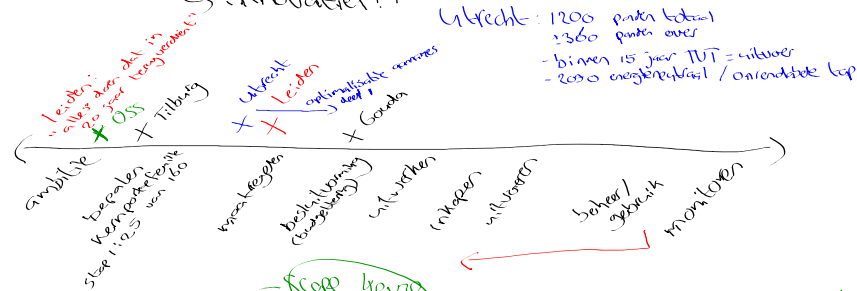 Utrecht: 1200 panden totaal
±360 panden over
- binnen 15 jaar TVT = uitvoer
- 2030 energieneutraal / onrendabele top
Leiden:
"alles doen dat in
20 jaar terugverdient"
Oss
Tilburg
Utrecht
Leiden
optimalisatie
deel 1
Gouda
ambitie
bepalen
kernportefeuille
stap 1: 25 van 160
maatregelen
besluitvorming
(budgettering)
uitwerken
inkopen
uitvoeren
beheer/
gebruik
monitoren